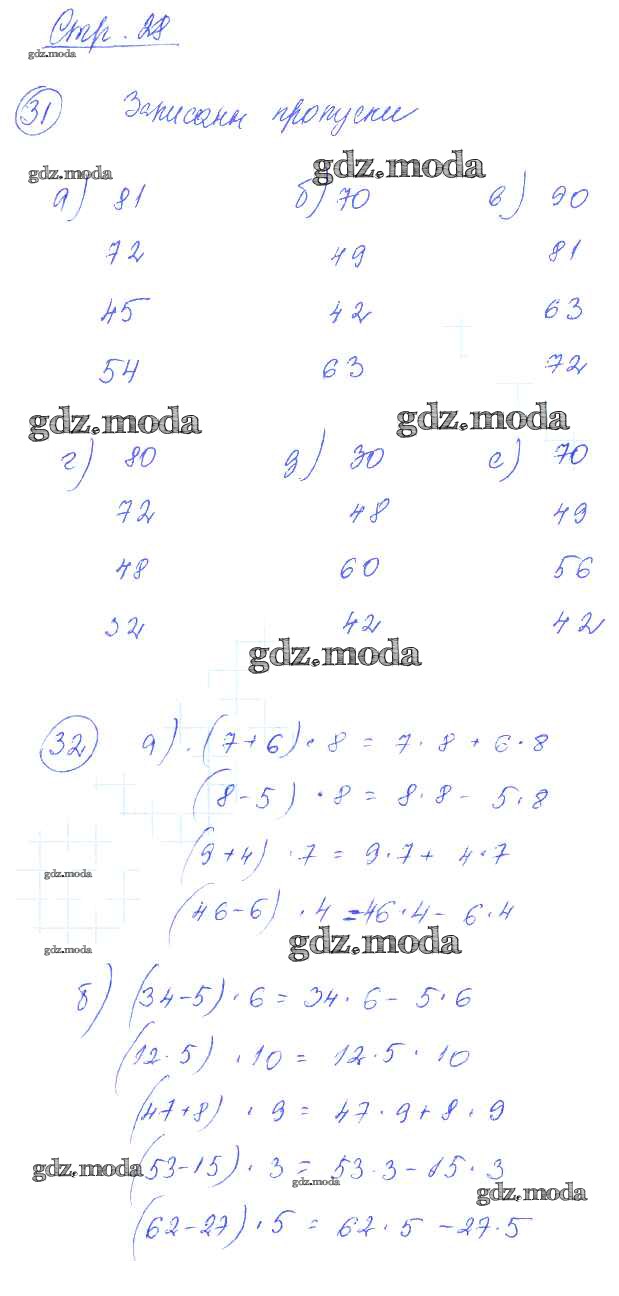 Стр. 28
gdz.moda
31 Записаны пропуски
gdz.moda gdz.moda
а) 81 б) 70 в) 90
72 49 81
45 42 63
54 63 72
gdz.moda gdz.moda
г) 80 д) 30 е) 70
72 48 49
48 60 56
32 42 42
gdz.moda
32 а). (7+6)·8 = 7·8 + 6·8
(8-5) ·8 = 8·8 - 5·8
(9+4) ·7 = 9·7 + 4·7
gdz.moda
(46-6) ·4 = 46·4 - 6·4
gdz.moda gdz.moda
б) (34-5)·6 = 34·6 - 5·6
(12·5) ·10 = 12·5·10
(47+8) ·9 = 47·9 + 8·9
gdz.moda (53-15)·3 = 53·3 - 15·3
gdz.moda gdz.moda
(62-27)·5 = 62·5 - 27·5